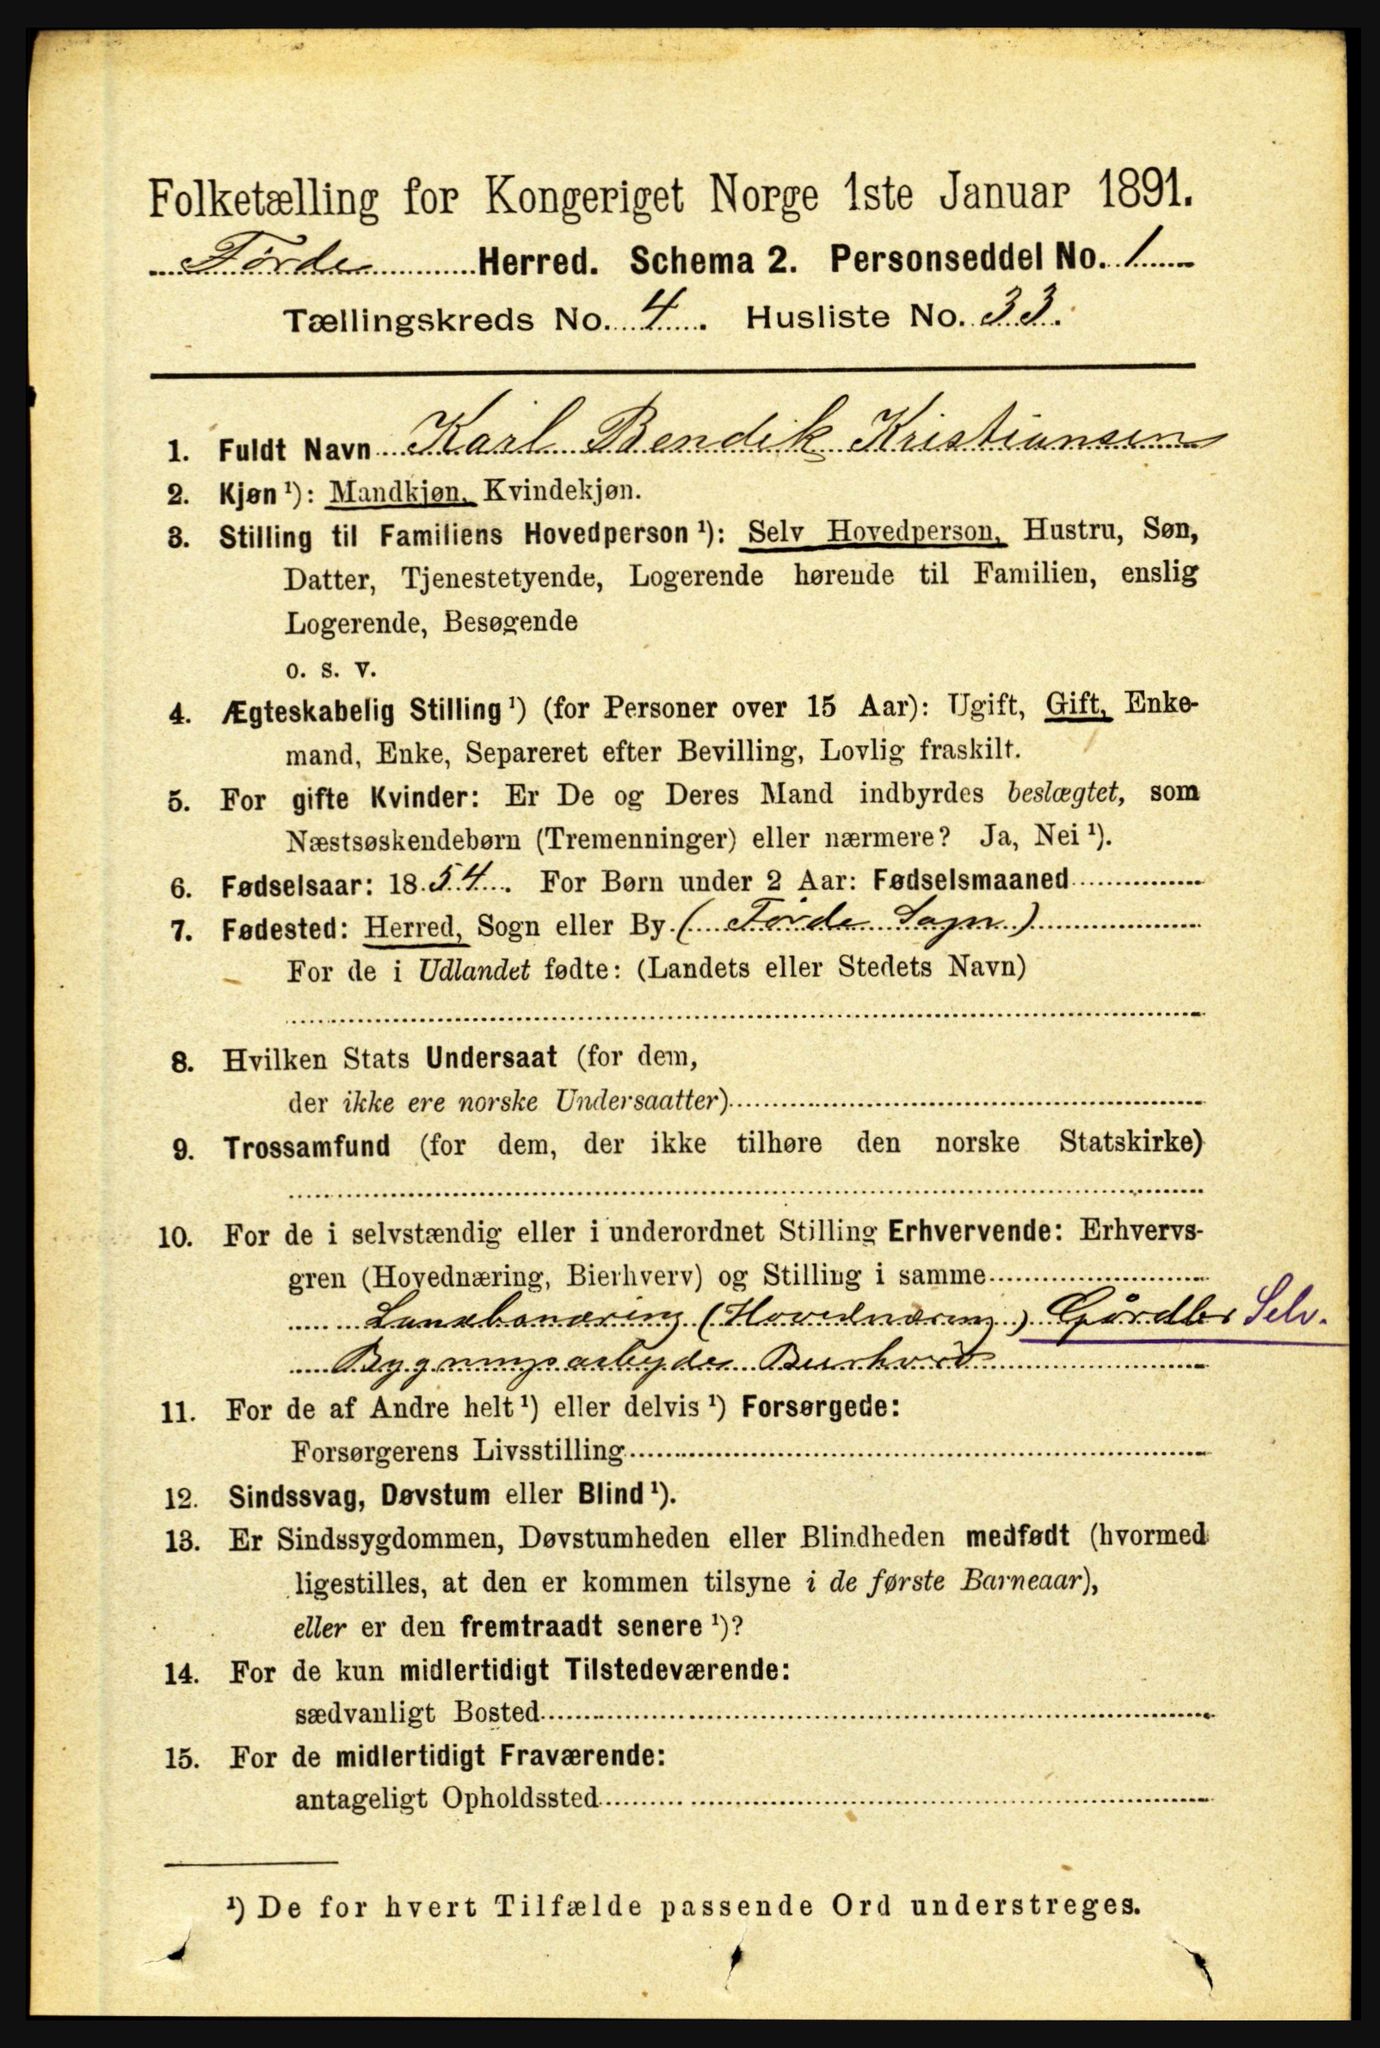 Folketælling for Kongeriget Norge 1ste Januar 1891.
Førde Herred. Schema 2. Personseddel No. 1
Tællingskreds No. 4. Husliste No. 33.
1. Fuldt Navn Karl Bendik Kristiansen
2. Kjøn ¹): Mandkjøn, Kvindekjøn.
3. Stilling til Familiens Hovedperson ¹): Selv Hovedperson, Hustru, Søn,
Datter, Tjenestetyende, Logerende hørende til Familien, enslig
Logerende, Besøgende
o. s. v.
4. Ægteskabelig Stilling ¹) (for Personer over 15 Aar): Ugift, Gift, Enke-
mand, Enke, Separeret efter Bevilling, Lovlig fraskilt.
5. For gifte Kvinder: Er De og Deres Mand indbyrdes beslægtet, som
Næstsøskendebørn (Tremenninger) eller nærmere? Ja, Nei ¹).
6. Fødselsaar: 1854. For Børn under 2 Aar: Fødselsmaaned
7. Fødested: Herred, Sogn eller By (Førde Sogn)
For de i Udlandet fødte: (Landets eller Stedets Navn)
8. Hvilken Stats Undersaat (for dem,
der ikke ere norske Undersaatter)
9. Trossamfund (for dem, der ikke tilhøre den norske Statskirke)
10. For de i selvstændig eller i underordnet Stilling Erhvervende: Erhvervs-
gren (Hovednæring, Bierhverv) og Stilling i samme
(Hovednæring) Gårdbr Selv.
Bygningsarbyder
11. For de af Andre helt ¹) eller delvis ¹) Forsørgede:
Forsørgerens Livsstilling
12. Sindssvag, Døvstum eller Blind ¹).
13. Er Sindssygdommen, Døvstumheden eller Blindheden medfødt (hvormed
ligestilles, at den er kommen tilsyne i de første Barneaar),
eller er den fremtraadt senere ¹)?
14. For de kun midlertidigt Tilstedeværende:
sædvanligt Bosted
15. For de midlertidigt Fraværende:
antageligt Opholdssted
¹) De for hvert Tilfælde passende Ord understreges.